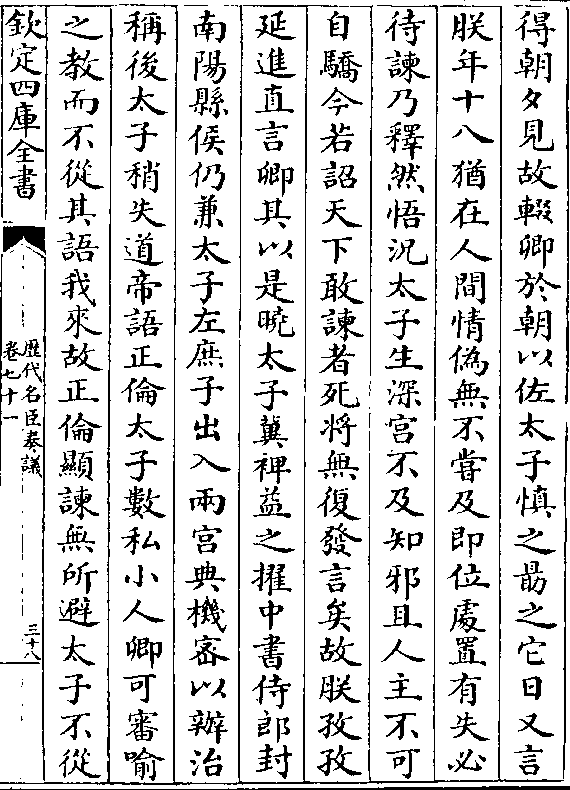 得朝夕見故輟卿於朝以佐太子慎之勗之它日又言
朕年十八猶在人間情偽無不嘗及即位處置有失必
待諫乃釋然悟況太子生深宮不及知邪且人主不可
自驕今若詔天下敢諫者死將無復發言矣故朕孜孜
延進直言卿其以是曉太子冀裨益之擢中書侍郎封
南陽縣侯仍兼太子左庶子出入兩宮典機密以辦治
稱後太子稍失道帝語正倫太子數私小人卿可審喻
之教而不從其語我來故正倫顯諫無所避太子不從
欽定四庫全書
歴代名臣奏議
卷七十一
三十八